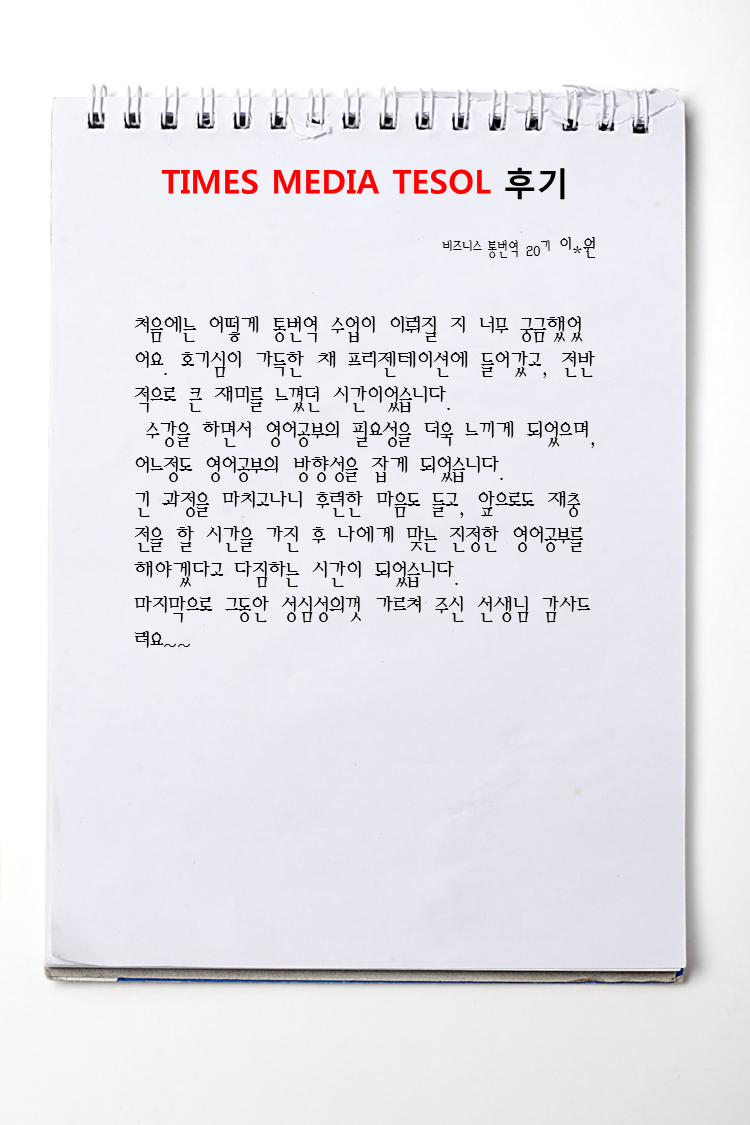 TIMES MEDIA TESOL 후기
비즈니스 통번역 20기 이*원
처음에는 어떻게 통번역 수업이 이뤄질 지 너무 궁금했었
어요. 호기심이 가득한 채 프리젠테이션에 들어갔고, 전반
적으로 큰 재미를 느꼈던 시간이었습니다.
수강을 하면서 영어공부의 필요성을 더욱 느끼게 되었으며,
어느정도 영어공부의 방향성을 잡게 되었습니다.
긴 과정을 마치고나니 후련한 마음도 들고, 앞으로도 재충
전을 할 시간을 가진 후 나에게 맞는 진정한 영어공부를
해야겠다고 다짐하는 시간이 되었습니다.
마지막으로 그동안 성심성의껏 가르쳐 주신 선생님 감사드
려요~~